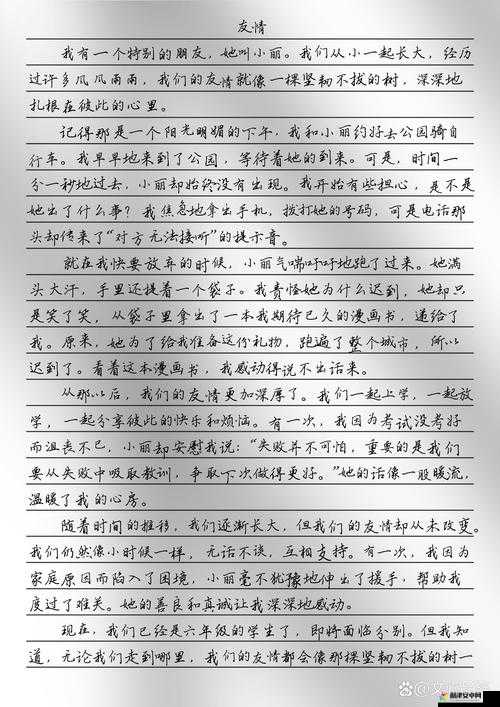 友情
我有一个特别的朋友，她叫小丽。我们从小一起长大，经历
过许多风风雨雨，我们的友情就像一棵坚韧不拔的树，深深地
扎根在彼此的心里。
记得那是一个阳光明媚的下午，我和小丽约好去公园骑自
行车。我早早地来到了公园，等待着她的到来。可是，时间一
分一秒地过去，小丽却始终没有出现。我开始有些担心，是不是
她出了什么事？我焦急地拿出手机，拨打她的号码，可是电话那
头却传来了“对方无法接听”的提示音。
就在我快要放弃的时候，小丽气喘吁吁地跑了过来。她满
头大汗，手里还提着一个袋子。我责怪她为什么迟到，她却只
是笑了笑，从袋子里拿出了一本我期待已久的漫画书，递给了
我。原来，她为了给我准备这份礼物，跑遍了整个城市，所以
迟到了。看着这本漫画书，我感动得说不出话来。
从那以后，我们的友情更加深厚了。我们一起上学，一起放
学，一起分享彼此的快乐和烦恼。有一次，我因为考试没考好
而沮丧不已，小丽却安慰我说：“失败并不可怕，重要的是我们
要从失败中吸取教训，争取下次做得更好。”她的话像一股暖流，
温暖了我的心房。
随着时间的推移，我们逐渐长大，但我们的友情却从未改变。
我们仍然像小时候一样，无话不谈，互相支持。有一次，我因为
家庭原因而陷入了困境，小丽毫不犹豫地伸出了援手，帮助我
度过了难关。她的善良和真诚让我深深地感动。
现在，我们已经是六年级的学生了，即将面临分别。但我知
道，无论我们走到哪里，我们的友情都会像那棵坚韧不拔的树一